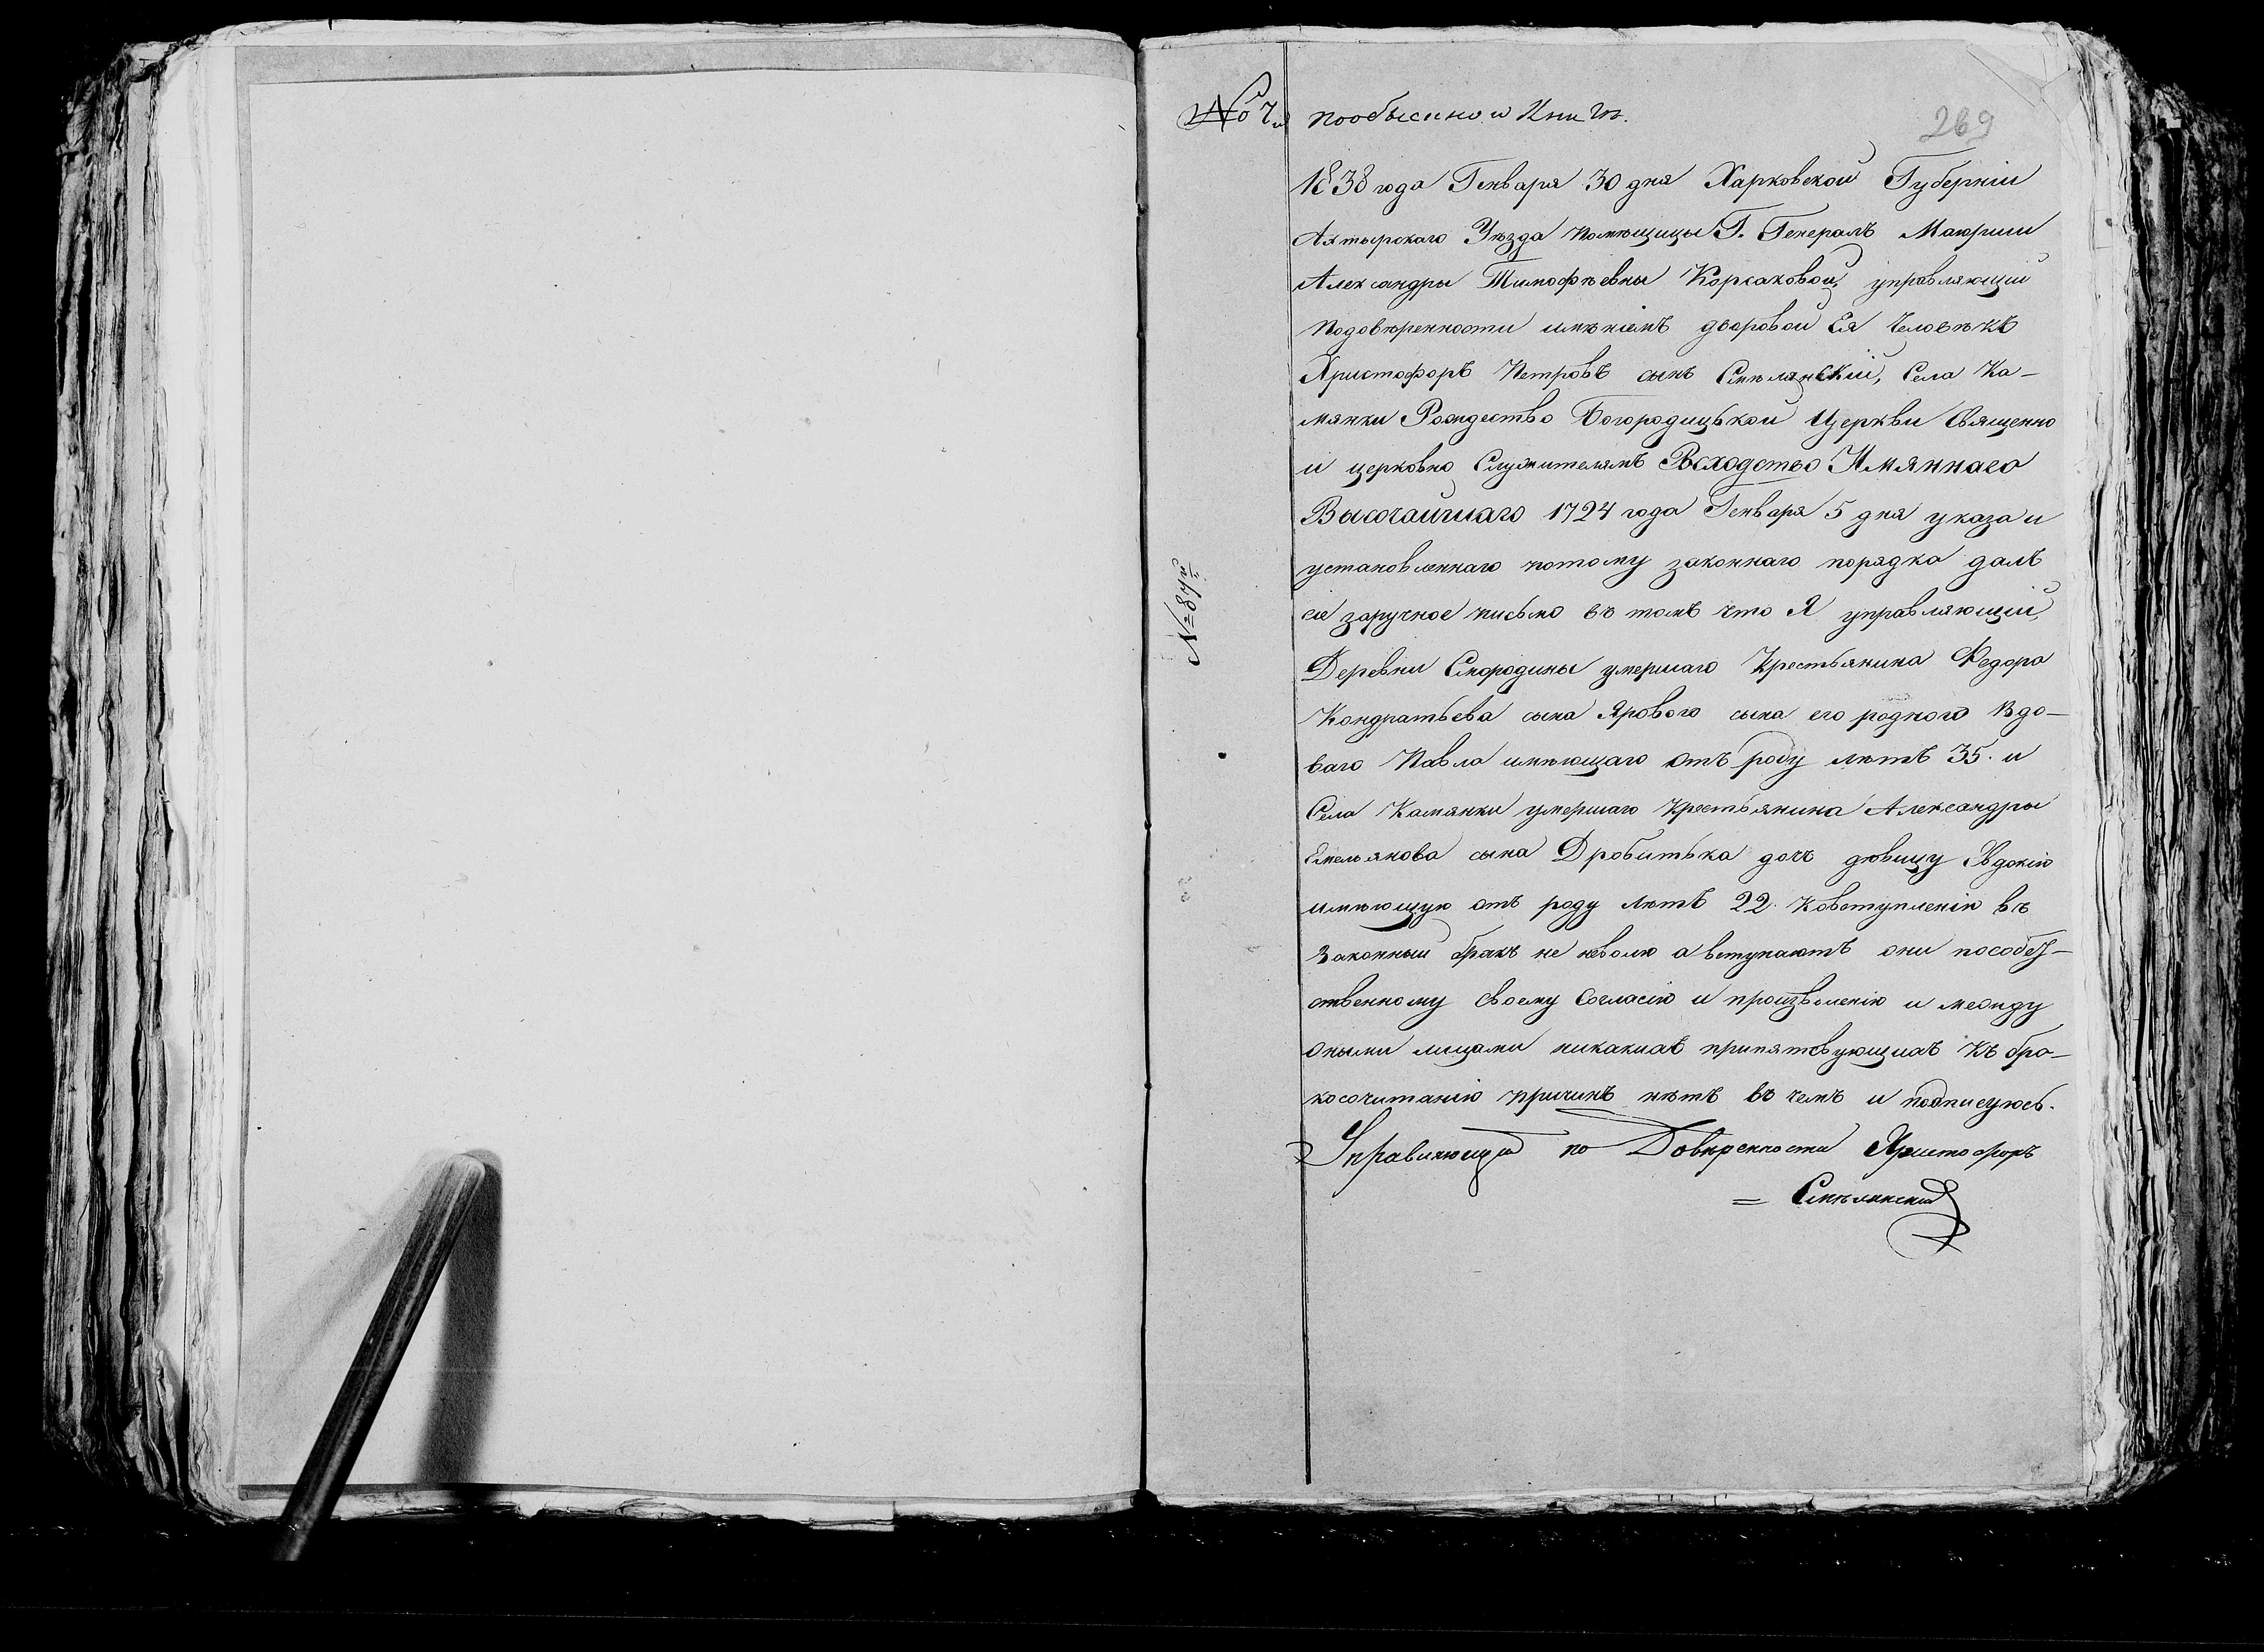 № 7й пообыскной Книгѣ.
269
1838 года Генваря 30 дня Харковской Губерніи
Ахтырскаго Уѣзда помѣщицы Г. Генералъ Маюрши
Александры Тимофѣевны Корсаковой, управляющій
подовѣренности имѣніемъ дворовой Ея человѣкъ
Христофоръ Петровъ сынъ Смѣлянскій, Села Ка-
мянки Рождество Богородицькой Церкви Священно
и церковно Служителямъ Всходство Имяннаго
Высочайшаго 1724 года Генваря 5 дня указа и
установленнаго потому законнаго порядка далъ
сіе заручное письмо въ томъ что Я управляющій,
Деревни Смородины умершаго Крестьянина Федора
Кондратьева сына Ярового сына его родного Вдо-
ваго Павла имѣющаго отъ роду лѣтъ 35. и
Села Камянки умершаго Крестьянина Александры
Емельянова сына Дробитька доч дѣвицу Евдокію
имѣющую отъ роду лѣтъ 22. Ковступленію въ
Законный бракъ не неволю а вступаютъ они пособст-
ственному своему Согласію и произволенію и между
оными лицами никакихъ припятствующихъ Къ бра-
косочитанію причинъ нѣтъ въ чемъ и подписуюсь.
Управляющій по Довѣренности Христофоръ
= Смѣлянскій